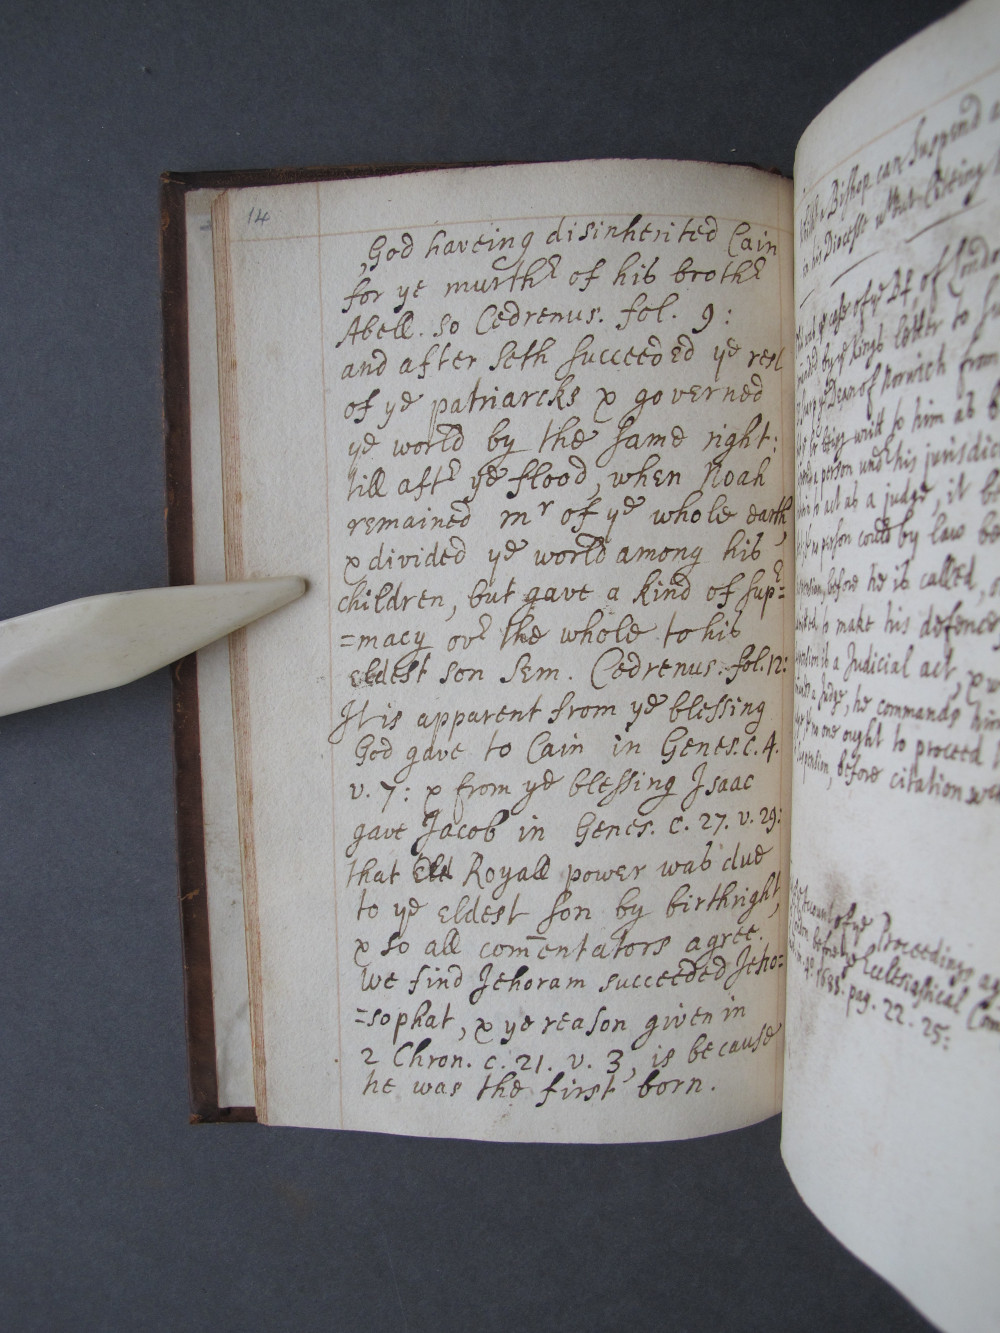 14
God haveing disinherited Cain
for ye murthr of his brothr
Abell. so Cedrenus. fol. 9:
and after Seth succeeded ye rest
of ye patriarcks & governed
ye world by the same right:
till aftr ye flood, when Noah
remained mr of ye whole earth,
& divided ye world among his
children, but gave a kind of supr=
=macy ovr the whole to his
eldest son Sem. Cedrenus. fol. 12:
It is apparent from ye blessing
God gave to Cain in Genes. c. 4.
v. 7: & from ye blessing Isaac
gave Jacob in Genes. c. 27. v. 29:
that Royall power was due
to ye eldest son by birthright,
& so all com̄entators agree.
We find Jehoram succeeded Jeho=
=sophat, & ye reason given in
2 Chron. c. 21. v. 3, is because
he was the first born.
a Bishop can suspend a
in his Diocesse without Citeing
case of ye Bp. of London
by ye Kings letter to su
ye Dean of Norwich from
being writt to him as B
a person undr his jurisdic
to act as a judge, it b
person could by law be
before he is called,
to make his defence
is a Judicial act, & w
a Judge, he commands him
no one ought to proceed
suspension, before citation
Account of ye Proceedings ag
London before ye Ecclesiastical Com
in 4o. 1688. pag. 22. 25: